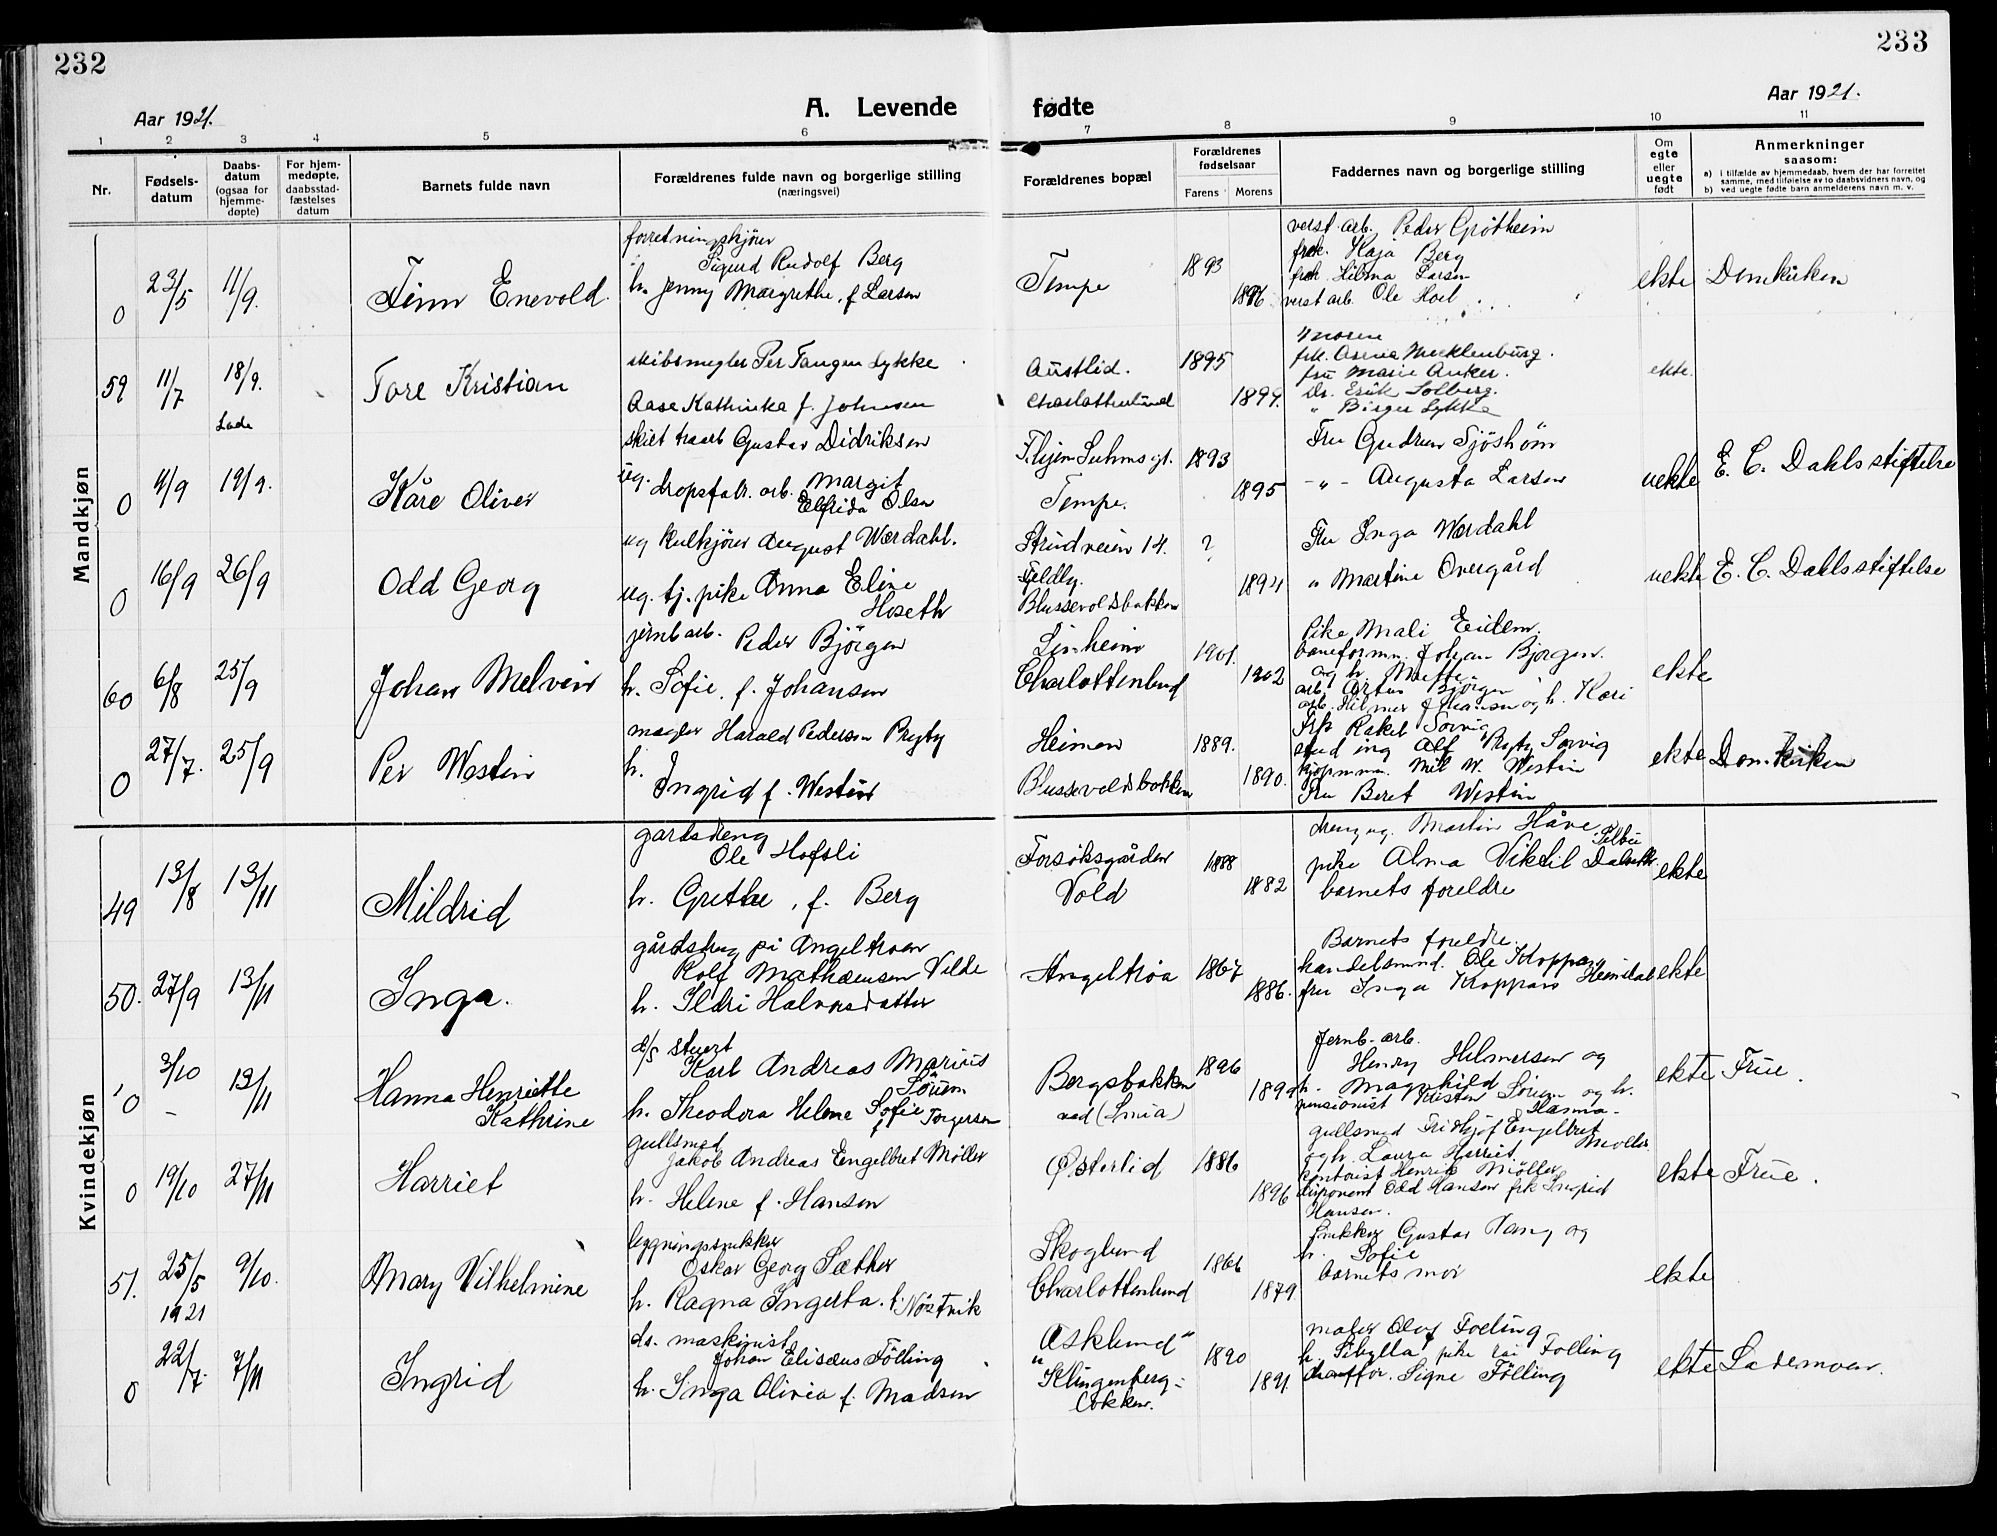 232
233
Aar 1921.
A. Levende
fødte
Aar 1921.
1 2 3 4 5 6 7 8 9 10 11
Nr.
Fødsels-
datum
Daabs-
datum
(ogsaa for
hjemme-
døpte)
For hjem-
medøpte,
daabsstad-
fæstelses
datum
Barnets fulde navn
Forældrenes fulde navn og borgerlige stilling
(næringsvei)
Forældrenes bopæl
Forældrenes
fødselsaar
Farens
Morens
Faddernes navn og borgerlige stilling
Om
egte
eller
uegte
født
Anmerkninger
saasom:
a) i tilfælde av hjemmedaab, hvem der har forrettet
samme, med tilføielse av to daabsvidners navn, og
b) ved uegte fødte barn anmelderens navn m. v.
Mandkjøn
0 23/5 11/9. Finn Enevold.
forretningskjörer
Sigurd Rudolf Berg
h. Jenny Margrethe, f. Larsen
Tempe 1893 1896
verst. arb. Peder Grötheim
frk. Kaja Berg
frk. Hilma Larsen
verst arb. Ole Hoel
ekte Domkirken
59 11/7 18/9. Lade Tore Kristian
skibsmegler Per Tangen Lykke
Aase Kathinka f. Johnsen
Austlid.
Charlottenlund
1895 1899.
moren
frk. Mecklenburg.
fru Marie Anker.
Dr. Erik Solberg.
" Birger Lykke
ekte.
0 4/9 19/9. Kåre Oliver
Gustav Didriksen
ug. dropsfabr. arb. Margit
Elfrida Olsen
Suhmsgt.
Tempe.
1893 1895
Fru Gudrun Sjöström
- " - Augusta Larsen
uekte E. C. Dahls stiftelse
0 16/9 26/9 Odd Georg
ug kulkjörer August Wærdahl.
ug. tj. pike Anna Eline
Hoseth
14. ?
Feldly.
Blussevoldsbakken
1894
Fru Inga Wærdahl
" Martine Overgård
uekte E. C. Dahls stiftelse
60 6/8 25/9 Johan Melvin
jernb arb. Peder Björgen
h. Sofie, f. Johansen
Linheim
Charlottenlund
1901. 1902
Pike Mali Eidem.
baneform. Johan Bjorgen.
og h. Mette
arb. Björgen
arb. Hilmer Johansen og h. Kari
ekte
0 27/7. 25/9 Per Westin
megler Harald Pedersen Prytz
h.
Ingrid f. Westin
Heimen
Blussevoldsbakken
1889. 1890.
Rakel Sorvig
stud ing Alf Prytz Sorvig
kjøpmnn. W. Westin
Fru Beret Westin
ekte Domkirken
Kvindekjøn
49 13/8 13/11 Mildrid
gardsdreng
Ole Hofsli
h. Grethe, f. Berg
Forsöksgården
Vold
1888 1882
dreng ug. Martin Håve Selbu
pike Alma Viktil
barnets foreldre
ekte
50. 27/9 13/11 Inga.
gårdsbrug på Angeltroen
Rolf Mathæusen Vilde
h. Ildri Halvorsdatter
Angeltröa 1867 1886.
Barnets foreldre.
handelsmnd. Ole Kroppan
fru Inga Kroppan Heimdal
ekte
0 3/10 13/11 Hanna Henriette
Kathrine
d/s stuert
Karl Andreas Marius
Sörum
h. Theodora Helene Sofie f Torgersen
Bergsbakken
ved (Smia)
1896 1899
Jernb. arb.
Henry Hilmersen og
h. Magnhild
pensionist Kristen Sörum og h.
Hanna
ekte Frue.
0 19/10 27/11 Harriet
gullsmed
Jakob Andreas Engelbret Møller
h. Helene f. Hansen
Østerlid 1886 1896
gullsmed Fridtjof Engelbret
Moller
og h. Laura Harriet.
kontorist Henrik Møller
disponent Odd Hansen frk Ingrid
Hansen.
ekte Frue.
51. 25/5 1921 9/10. Mary Vilhelmine
bygningssnekker
Oskar Georg Sæther
h. Ragna Ingerta. f. Nöstvik
Skoglund
Charlottenlund
1866 1879
Snekker Gustav og
h. Sofie
barnets mor
ekte
0 22/7. 7/11 Ingrid
ds. maskinist
Johan Elisæus Fölling
h. Inga Olivia f. Madsen
"Asklund"
"Klingenberg-
lökken.
1890 1891.
maler Olof Foeling
h. Sibylla pike Folling
Signe Fölling
ekte Lademoen.